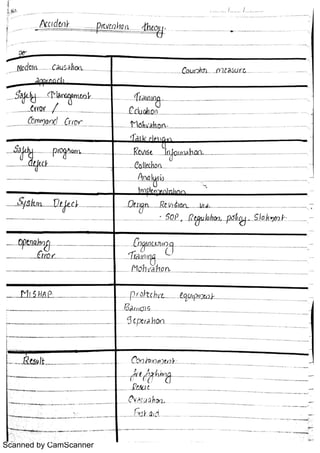 Accident prevention theory
Modern Causation approach
Countr measure
Safety Management error / Command Error
Training
Education
Motivation
Task design
Safety program defect
Revise Information
Collection
Analysis
Implementation
System Defect
Design Revision via
- SOP, Regulation, policy, Statement
Operating Error
Engineering
Training
Motivation
MISHAP
protective equipment
Barriers
Seperation
Result
Containment
Fire fighting
Rescue
Evacuation
First aid
Scanned by CamScanner